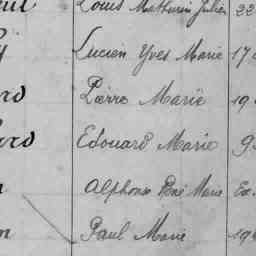 Louis Mathurin Julien 22
Lucien Yves Marie 17
Pierre Marie 19
Edouard Marie 9
Alphonse René Marie Ex.
Paul Marie 19